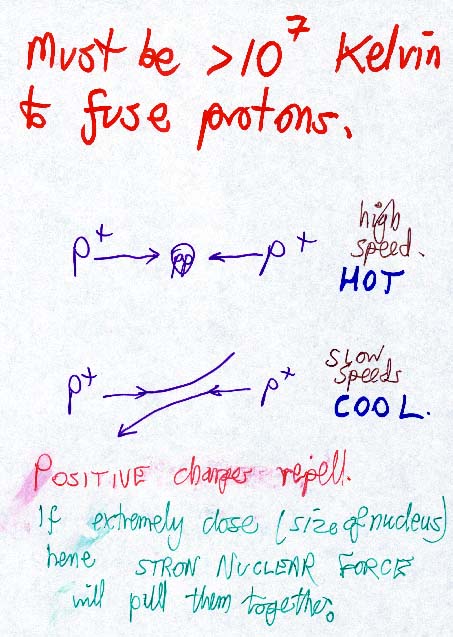 Must be >10⁷ Kelvin
to fuse protons.
high
speed.
p⁺ pp p⁺
HOT
SLOW
speeds
p⁺ p⁺
COOL.
POSITIVE charges repell.
If extremely close (size of nucleus)
hene STRON NUCLEAR FORCE
will pull them together.